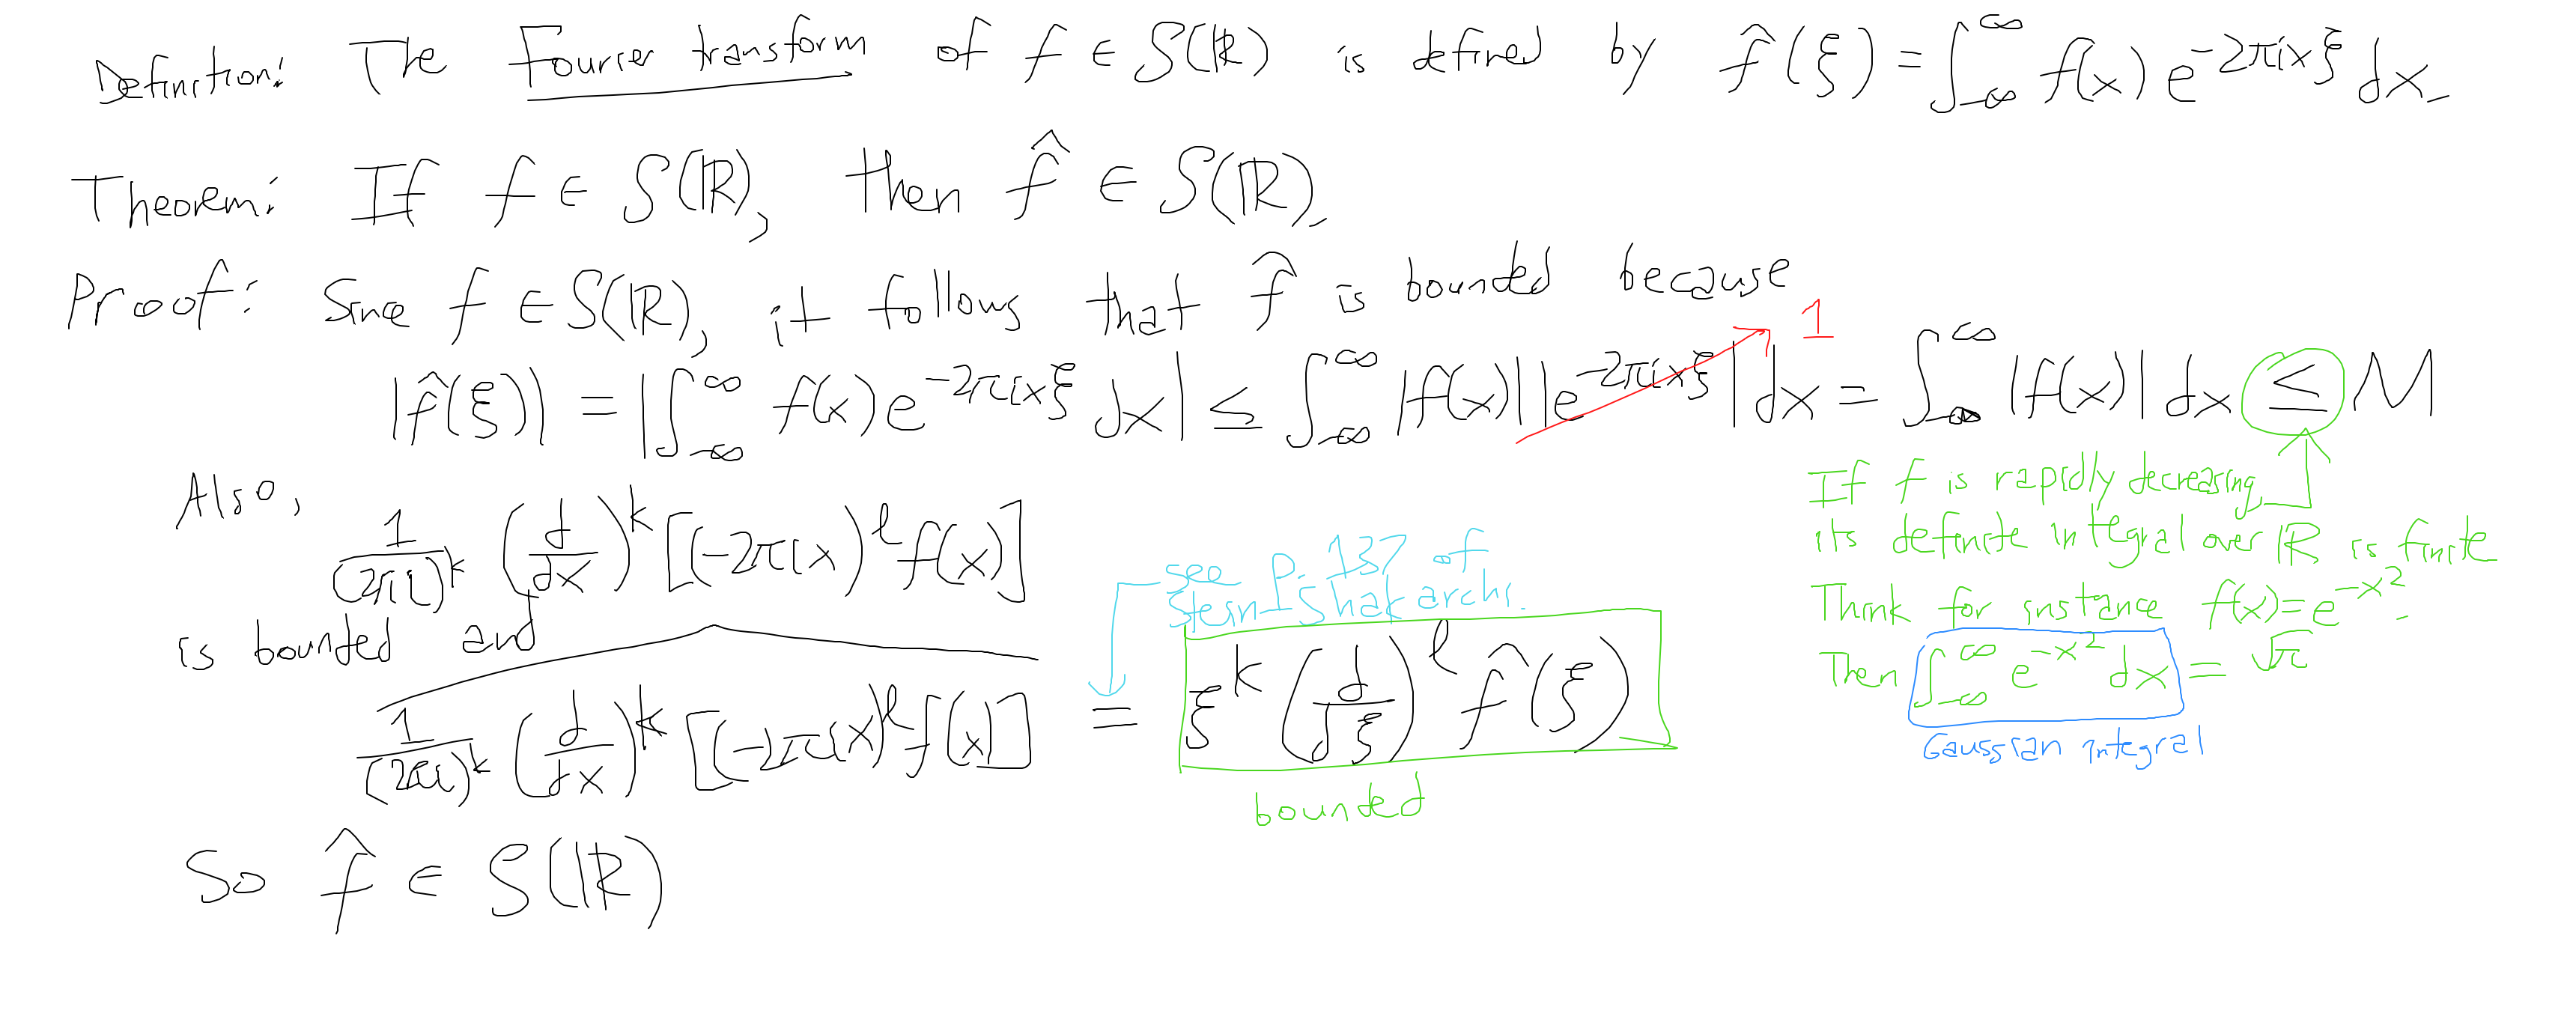 Definition: The Fourier transform of f ∈ S(ℝ) is defined by f̂(ξ) = ∫_{-∞}^{∞} f(x) e^{-2πixξ} dx.
Theorem: If f ∈ S(ℝ), then f̂ ∈ S(ℝ).
Proof: Since f ∈ S(ℝ), it follows that f̂ is bounded because
|f̂(ξ)| = |∫_{-∞}^{∞} f(x) e^{-2πixξ} dx| ≤ ∫_{-∞}^{∞} |f(x)| |e^{-2πixξ}| dx = ∫_{-∞}^{∞} |f(x)| dx ≤ M
1
If f is rapidly decreasing,
its definite integral over ℝ is finite
Think for instance f(x) = e^{-x^2}.
Then ∫_{-∞}^{∞} e^{-x^2} dx = √π
Gaussian integral
Also,
1/(2πi)^k (d/dx)^k [(-2πix)^ℓ f(x)]
is bounded and
see p. 137 of
Stein-Shakarchi.
1/(2πi)^k (d/dx)^k [(-2πix)^ℓ f(x)]^ = ξ^k (d/dξ)^ℓ f̂(ξ)
bounded
So f̂ ∈ S(ℝ)